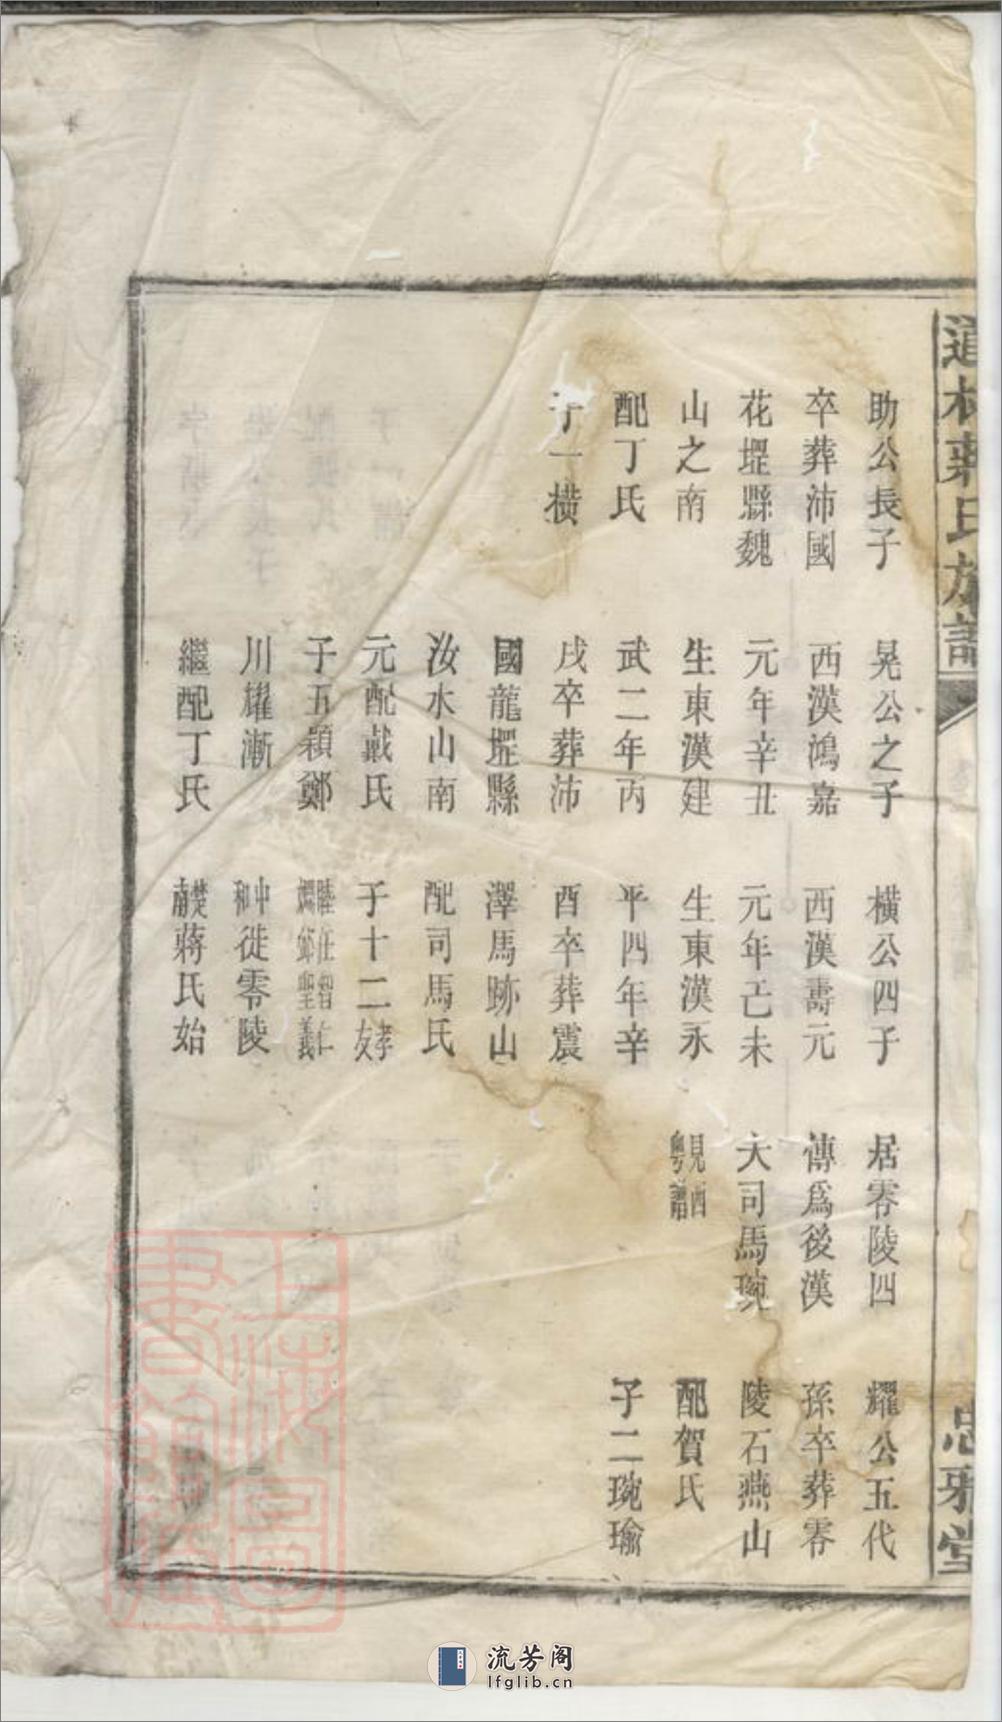 道林蔣氏族譜
忠雅堂
助公長子
卒葬沛國
花堽縣魏
山之南
配丁氏
子一橫
晃公之子
西漢鴻嘉
元年辛丑
生東漢建
武二年丙
戌卒葬沛
國龍堽縣
汝水山南
元配戴氏
子五穎鄭
川耀漸
繼配丁氏
橫公四子
西漢壽元
元年己未
生東漢永
平四年辛
酉卒葬震
澤馬跡山
配司馬氏
子十二孝友
睦任智仁
聖義
中和徙零陵
楚南蔣氏始
居零陵四
傳爲後漢
大司馬琬
見西粵譜
耀公五代
孫卒葬零
陵石燕山
配賀氏
子二琬瑜
上海圖書館藏
流芳阁
lfglib.cn